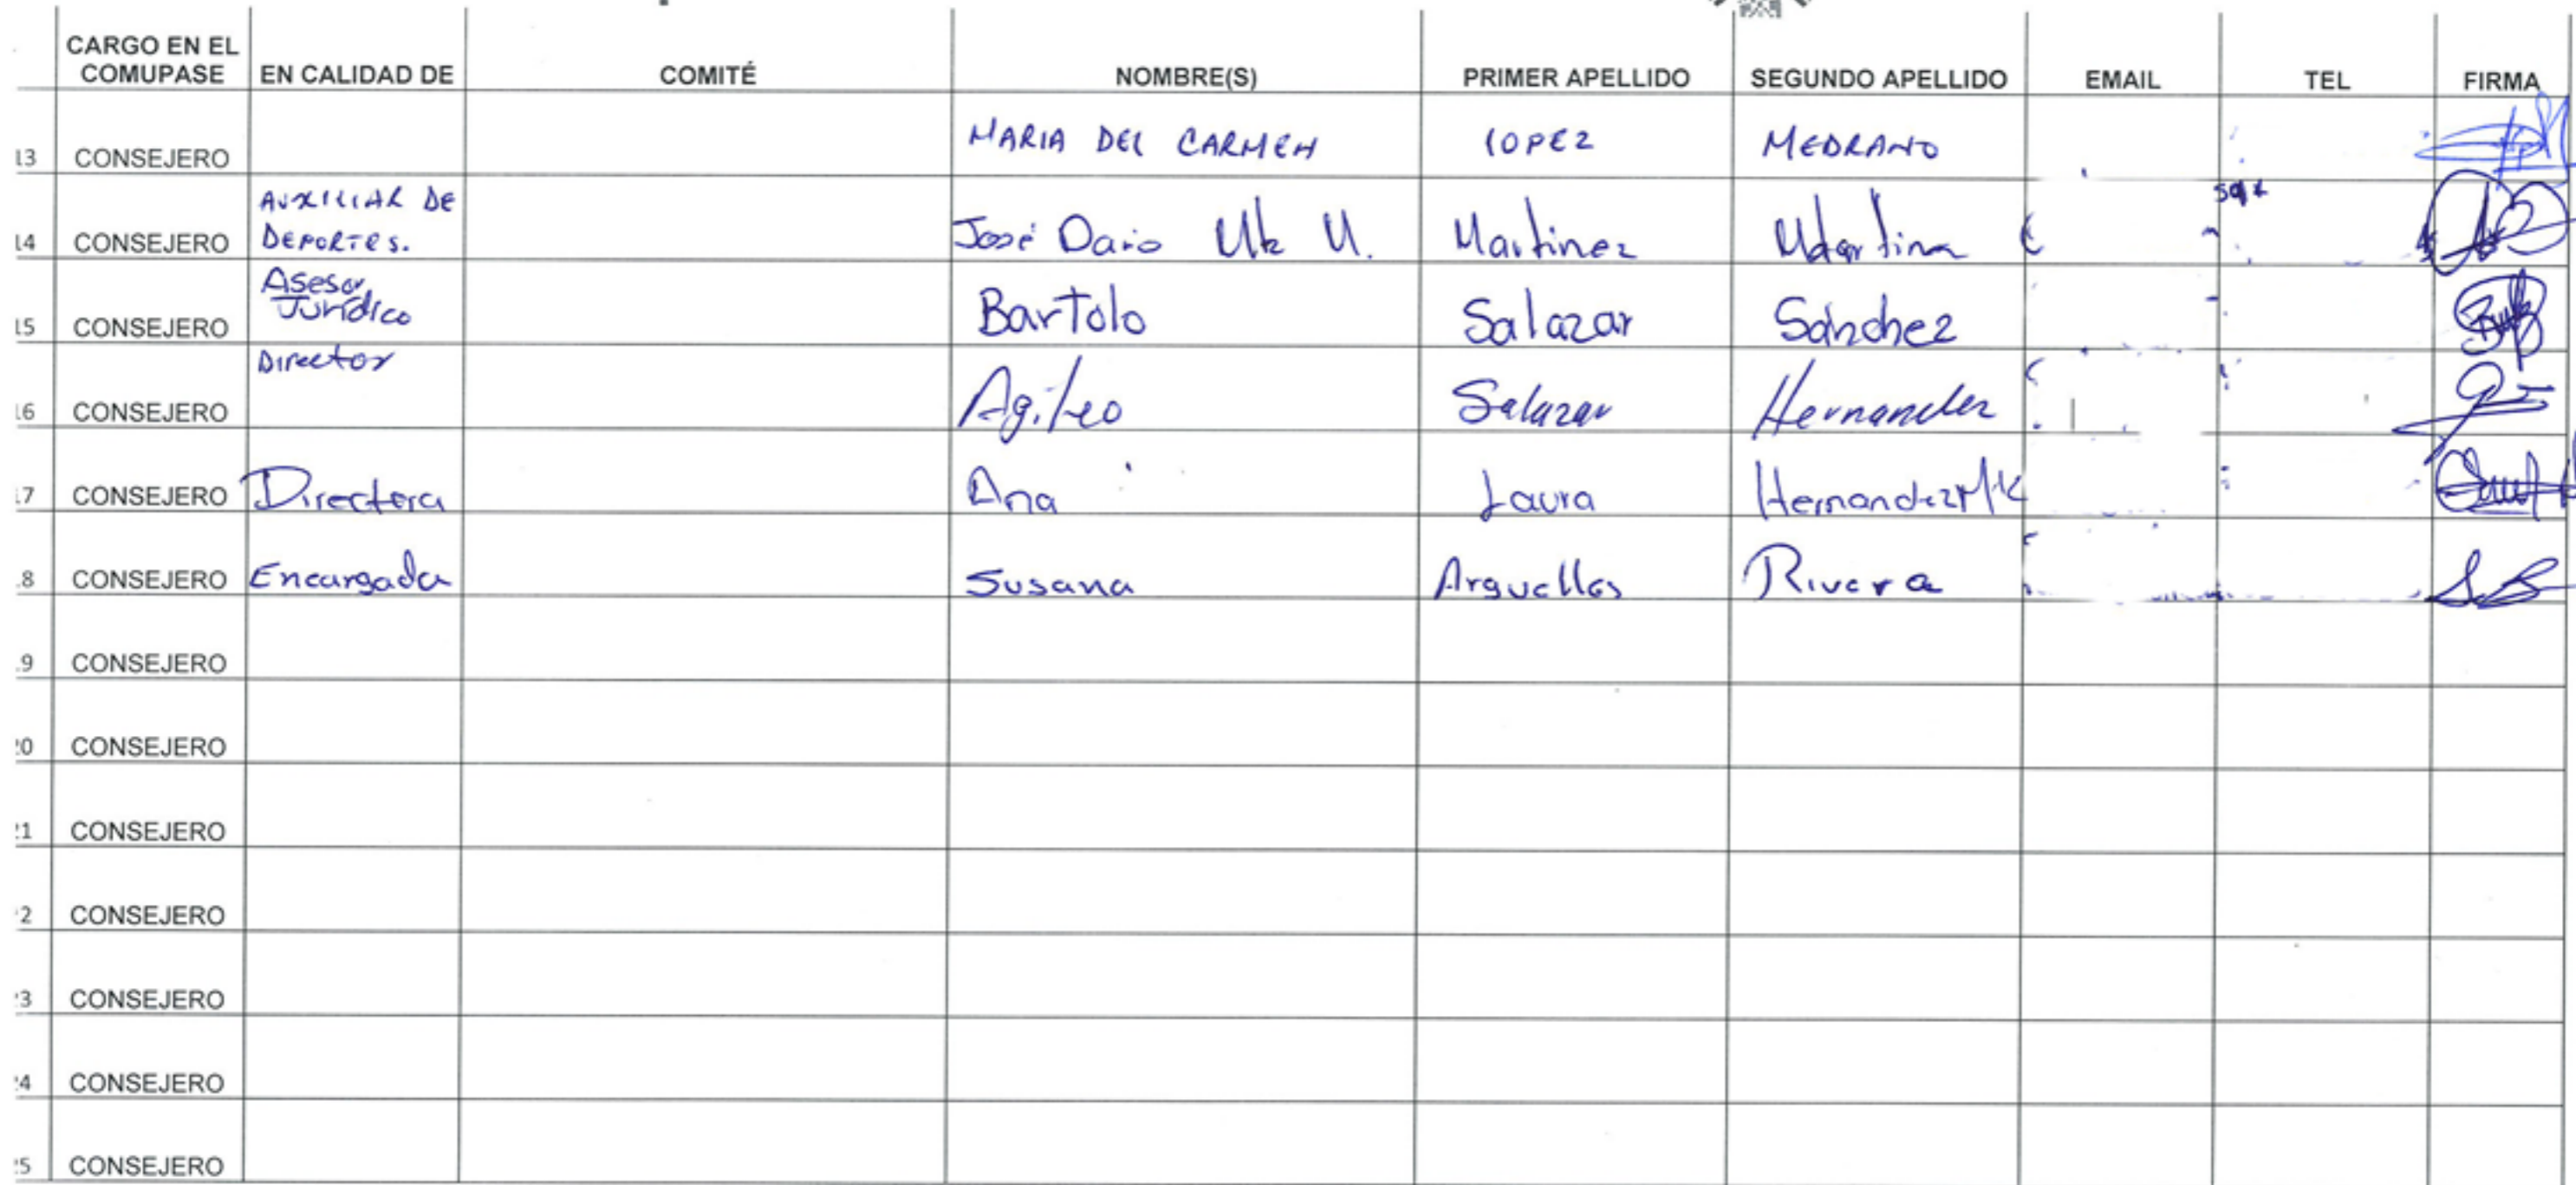 CARGO EN EL COMUPASE EN CALIDAD DE COMITÉ NOMBRE(S) PRIMER APELLIDO SEGUNDO APELLIDO EMAIL TEL FIRMA
13 CONSEJERO MARIA DEL CARMEN LOPEZ MEDRANO
14 CONSEJERO AUXILIAR DE DEPORTES. José Dario M. Martinez
15 CONSEJERO Asesor Jurídico Bartolo Salazar Sánchez
16 CONSEJERO Director Salazar Hernandez
17 CONSEJERO Directora Ana Laura Hernandez
18 CONSEJERO Encargada Susana Arguelles Rivera
19 CONSEJERO
20 CONSEJERO
21 CONSEJERO
22 CONSEJERO
23 CONSEJERO
24 CONSEJERO
25 CONSEJERO